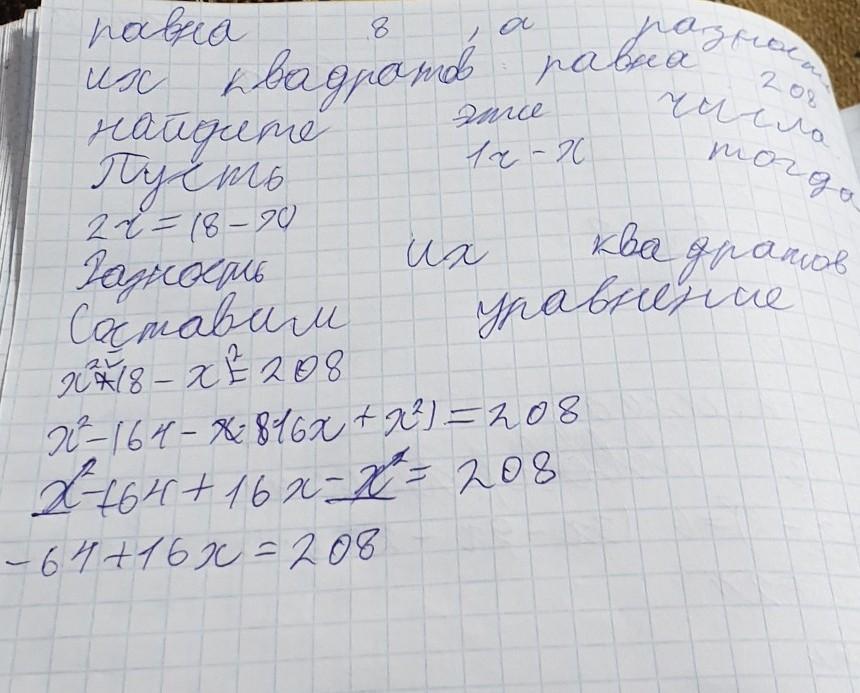 равна 8, а разность
их квадратов равна 208
найдите эти числа
Пусть 1x - x тогда
2x = (8 - x)
Разность их квадратов
Составим уравнение
x² - (8 - x)² = 208
x² - (64 - 16x + x²) = 208
x² - 64 + 16x - x² = 208
-64 + 16x = 208